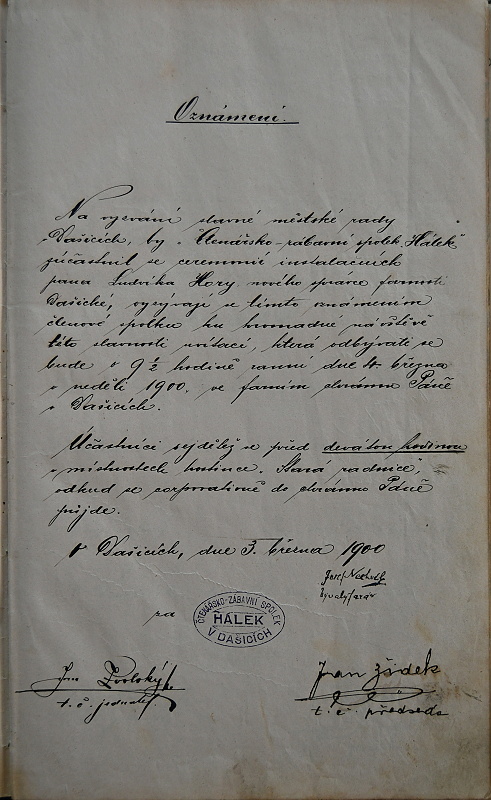 Oznámení.
Na vyzvání slavné městské rady
v Dašicích, by „Čtenářsko-zábavní spolek Hálek“
zúčastnil se ceremonií instalačních
pana Ludvíka Hory, nového správce farnosti
Dašické, vyzývají se tímto oznámením
členové spolku ku hromadné návštěvě
této slavnosti uvítací, která odbývati se
bude o 9 ½ hodině ranní dne 4. března
v neděli 1900. ve farním chrámu Páně
v Dašicích.
Účastníci sejdětež se před devátou hodinou
v místnostech hostince „Stará radnice“,
odkud se corporativně do chrámu Páně
půjde.
V Dašicích, dne 3. března 1900
Josef
za
ČTENÁŘSKO-ZÁBAVNÍ SPOLEK
HÁLEK
V DAŠICÍCH
Jan Žídek
t. č. jednatel
t. č. předseda